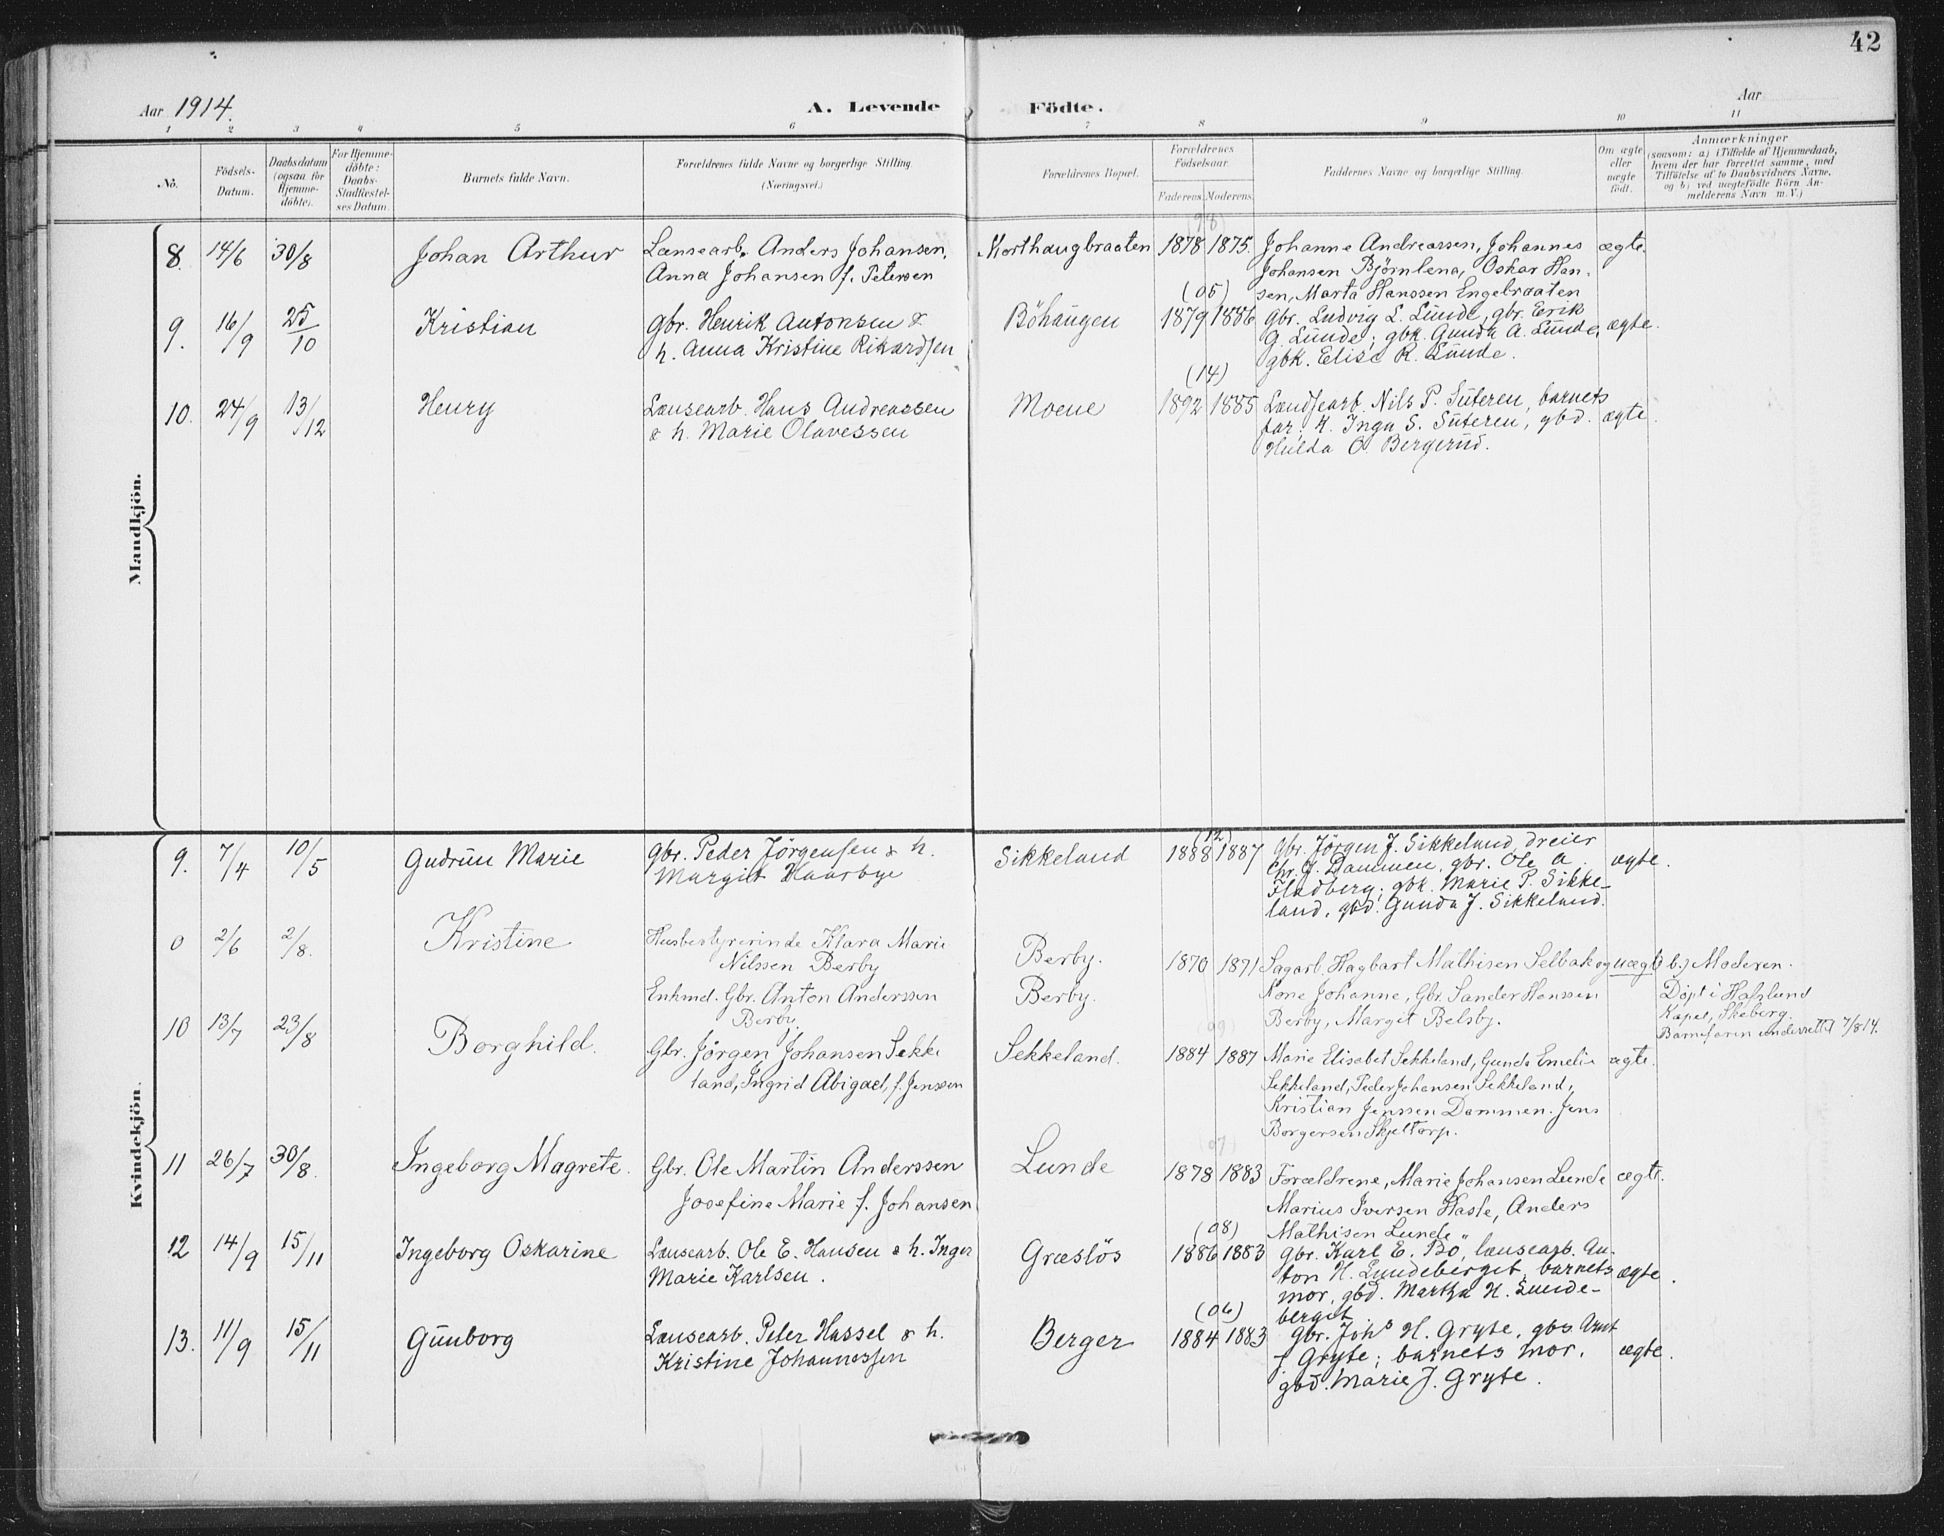 42
Aar 1914.
A. Levende Födte.
Aar
1 2 3 4 5 6 7 8 9 10 11
No.
Födsels-Datum.
Daabsdatum (ogsaa for Hjemme-döbte).
For Hjemme-döbte: Daabs-Stadfæstel-ses Datum.
Barnets fulde Navn.
Forældrenes fulde Navne og borgerlige Stilling. (Næringsvei.)
Forældrenes Bopæl.
Forældrenes Födselsaar.
Faderens. Moderens.
Faddernes Navne og borgerlige Stilling.
Om ægte eller uægte födt.
Anmærkninger
(saasom: a) i Tilfælde af Hjemmedaab,
hvem der har forrettet samme, med
Tilföielse af to Daabsvidners Navne,
og b) ved uægtefödte Börn An-
melderens Navn m. V.)
Mandkjön.
8. 14/6 30/8 Johan Arthur Lænsearb. Anders Johansen, Korthaugbraaten 1878 1875. Johanne Andreassen, Johannes ægte.
Anna Johansen f. Petersen Johansen Björnlena, Oskar Han-
(05) sen, Marta Hanssen Engebraaten
9. 16/9 25/10 Kristian Gbr. Henrik Antonsen & Böhaugen 1879 1886 Gbr. Ludvig L. Lunde, gbr. Erik
h. Anna Kristine Rikardsen G. Lunde; gbk. Gunda A. Lunde, ægte.
gbk. Elise R. Lunde.
(14)
10. 24/9 13/12 Henry Lænsearb. Hans Andreassen Moene 1892 1885 Lændsearb. Nils P. Suteren, barnets
& h. Marie Olavessen far; k. Inga S. Suteren, gbd. ægte.
Hulda O. Bergerud.
Kvindekjön.
(12)
9. 7/4 10/5 Gudrun Marie Gbr. Peder Jörgensen & h. Sikkeland 1888 1887 Gbr. Jörgen J. Sikkeland, dreier
Margit Haarbye Chr. J. Dammen, gbr. Ole A. ægte.
Fladberg; gbk. Marie P. Sikke-
land, gbd. Gunda J. Sikkeland.
0 2/6 2/8. Kristine Husbestyrerinde Klara Marie Berby. 1870 1871 Sagarb. Hagbart Mathisen Selbak og uægte b.) Moderen.
Nilssen Berby
Enkmd. Gbr. Anton Anderssen Berby. Kone Johanne, Gbr. Sander Hanssen Döpt i Hafslund
Berby. Berby, Margit Belsby. Kapel, Skeberg.
Barnefaren underrettet 7/8 14.
10 13/7 23/8 Borghild. Gbr. Jörgen Johansen Sekke Sekkeland. 1884 1887 Marie Elisabet Sekkeland, Gunda Emelie ægte.
land, Ingrid Abigael, f. Jenssen Sekkeland, Peder Johansen Sekkeland,
Kristian Jenssen Dammen. Jens
Borgersen Skjeltorp.
(07)
11 26/7 30/8. Ingeborg Magrete. Gbr. Ole Martin Anderssen Lunde 1878 1883 Forældrene, Marie Johansen Lunde ægte.
Josefine Marie f. Johansen Marius Iversen Hasle, Anders
(08) Mathisen Lunde
12 14/9 15/11 Ingeborg Oskarine Lænsearb. Ole E. Hansen & h. Inger Græslös 1886 1883 Gbr. Karl E. Bö, lænsearb. An-
Marie Karlsen. ton H. Lundeberget, barnets ægte.
mor, gbd. Martha H. Lunde-
(06) berget
13. 11/9 15/11 Gunborg Lænsearb. Peter Hassel & h. Berger 1884 1883 Gbr. Johs H. Gryte, gbs Arnt
Kristine Johannessen J. Gryte; barnets mor, ægte.
gbd. Marie J. Gryte.